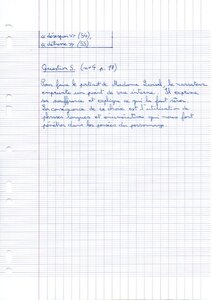 « désespoir » (54),
« détresse » (55)
Question 5. (n°4 p. 98)
Pour faire le portrait de Madame Bovary, le narrateur
emprunte un point de vue interne. Il exprime
sa souffrance et explique ce qui la fait rêver.
La conséquence de ce choix est l'utilisation de
phrases longues et énumératives qui nous font
pénétrer dans les pensées du personnage.